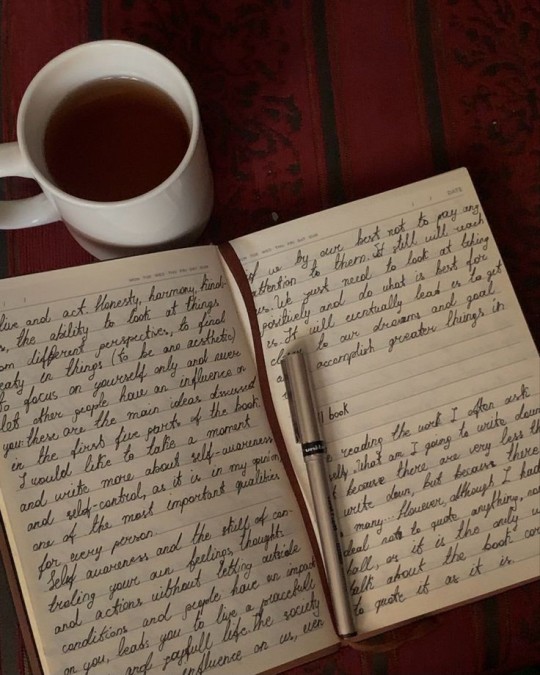 MON TUE WED THU FRI SAT SUN
live and act. Honesty, harmony, kind-
the ability to look at things
different perspectives, to find
in things (to be an aesthetic)
to focus on yourself only and never
let other people have an influence on
you: these are the main ideas discussed
in the first five parts of the book.
I would like to take a moment
and write more about self-awareness
and self-control, as it is in my opinion
one of the most important qualities
for every person.
Self awareness and the skill of con-
troling your own feelings, thoughts
and actions without letting outside
conditions and people have an impact
on you, leads you to live a peacefull
and joyfull life. The society
influence on us, even
DATE
MON TUE WED THU FRI SAT SUN
we by our best not to pay any
attention to them. It still will reach
us. We just need to look at things
positively and do what is best for
us. It will eventually lead us to get
to our dreams and goal
accomplish greater things in
book
reading the work I often ask
What am I going to write down
because there are very less
write down, but because there
many... However, although I had
not to quote anything,
or it is the only
talk about the book:
to quote it as it is.